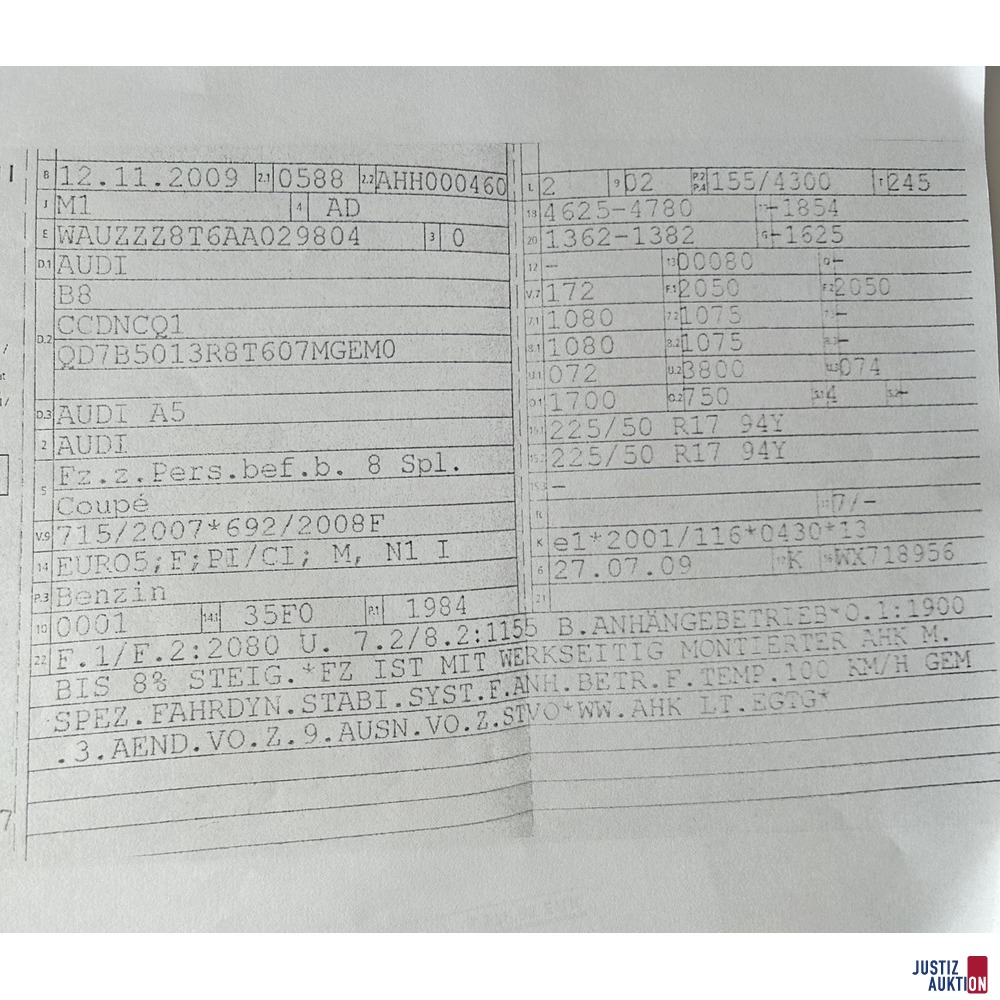 B 12.11.2009 2.1 0588 2.2 AHH000460
J M1 4 AD
E WAUZZZ8T6AA029804 3 0
D.1 AUDI
B8
D.2 CCDNCQ1
QD7B5013R8T607MGEM0
D.3 AUDI A5
2 AUDI
5 Fz.z.Pers.bef.b. 8 Spl.
Coupé
V.9 715/2007*692/2008F
14 EURO5;F;PI/CI; M, N1 I
P.3 Benzin
10 0001 14.1 35F0 P.1 1984
L 2 9 02 P.2 P.4 155/4300 T 245
18 4625-4780 -1854
20 1362-1382 G -1625
12 - 13 00080 Q -
V.7 172 F.1 2050 F.2 2050
7.1 1080 7.2 1075 7.3 -
8.1 1080 8.2 1075 8.3 -
U.1 072 U.2 3800 U.3 074
O.1 1700 O.2 750 S.1 4 S.2 -
15.1 225/50 R17 94Y
15.2 225/50 R17 94Y
15.3 -
R 11 7/-
K e1*2001/116*0430*13
6 27.07.09 17 K 16 WX718956
21
22 F.1/F.2:2080 U. 7.2/8.2:1155 B.ANHÄNGEBETRIEB*O.1:1900
BIS 8% STEIG.*FZ IST MIT WERKSEITIG MONTIERTER AHK M.
SPEZ.FAHRDYN.STABI.SYST.F.ANH.BETR.F.TEMP.100 KM/H GEM
.3.AEND.VO.Z.9.AUSN.VO.Z.STVO*WW.AHK LT.EGTG*
7
JUSTIZ
AUKTION